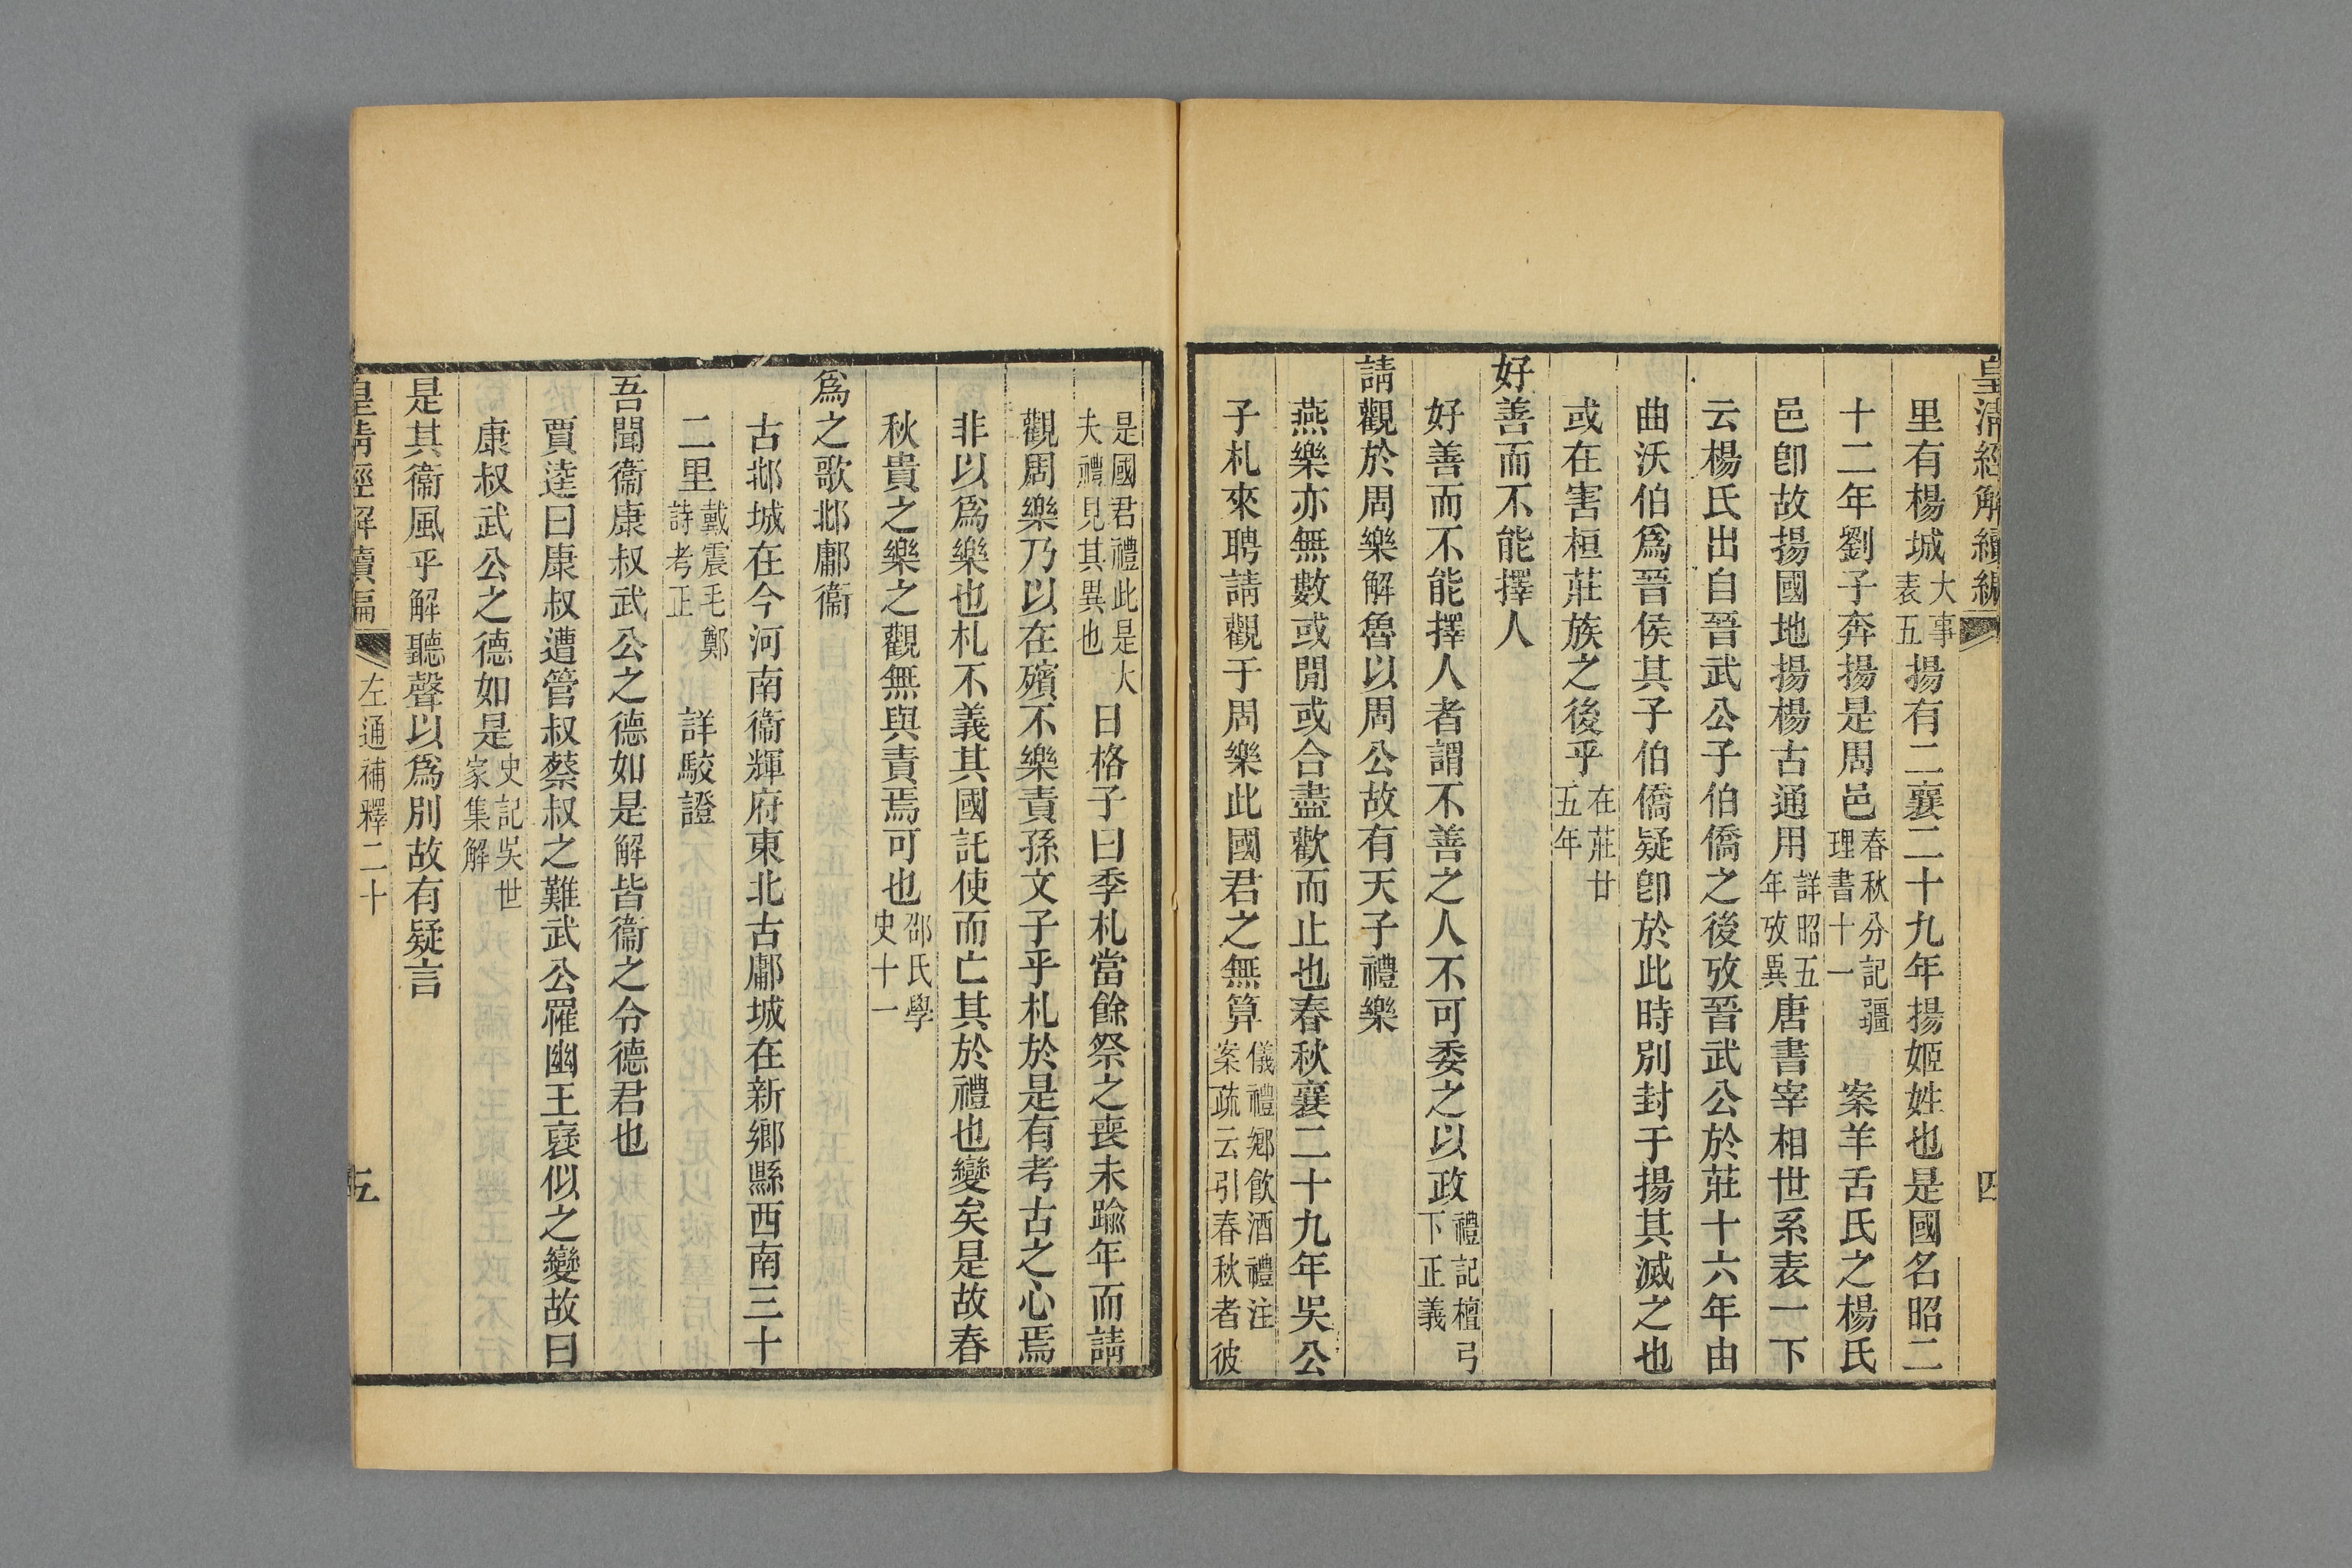 皇清經解續編 四
里有楊城大事表五揚有二襄二十九年揚姬姓也是國名昭二
十二年劉子奔揚是周邑春秋分記疆理書十一案羊舌氏之楊氏
邑卽故揚國地揚楊古通用詳昭五年攷異唐書宰相世系表一下
云楊氏出自晉武公子伯僑之後攷晉武公於莊十六年由
曲沃伯爲晉侯其子伯僑疑卽於此時別封于揚其滅之也
或在害桓莊族之後乎在莊廿五年
好善而不能擇人
好善而不能擇人者謂不善之人不可委之以政禮記檀弓下正義
請觀於周樂解魯以周公故有天子禮樂
燕樂亦無數或閒或合盡歡而止也春秋襄二十九年吳公
子札來聘請觀于周樂此國君之無算儀禮鄉飲酒禮注案疏云引春秋者彼
是國君禮此是大夫禮見其異也日格子曰季札當餘祭之喪未踰年而請
觀周樂乃以在殯不樂責孫文子乎札於是有考古之心焉
非以爲樂也札不義其國託使而亡其於禮也變矣是故春
秋貴之樂之觀無與責焉可也邵氏學史十一
爲之歌邶鄘衞
古邶城在今河南衞輝府東北古鄘城在新鄉縣西南三十
二里戴震毛鄭詩考正詳駮證
吾聞衞康叔武公之德如是解皆衞之令德君也
賈逵曰康叔遭管叔蔡叔之難武公罹幽王襃似之變故曰
康叔武公之德如是史記吳世家集解
是其衞風乎解聽聲以爲別故有疑言
皇清經解續編 左通補釋二十 五